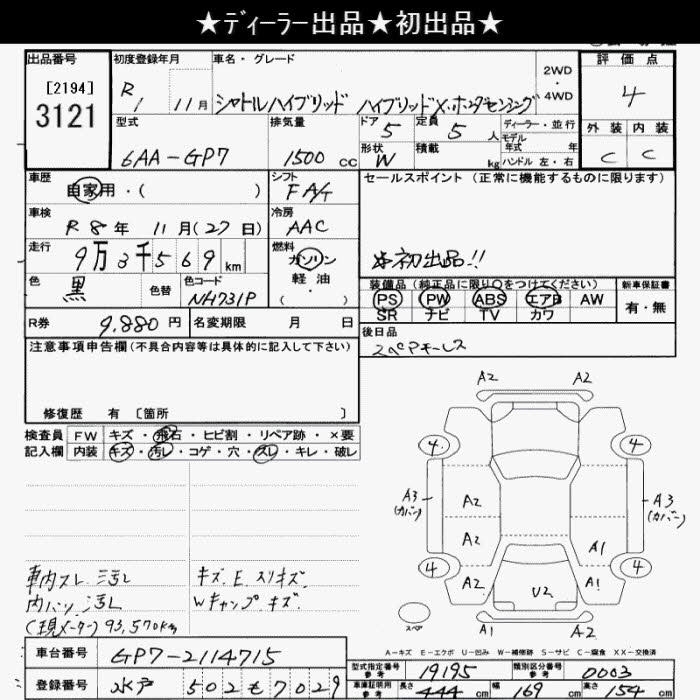 ★ディーラー出品★初出品★
出品番号
[2194]
3121
初度登録年月
R 1 11月
車名・グレード
シャトルハイブリッド ハイブリッドX・ホンダセンシング
2WD
・
4WD
評価点
4
外装 内装
C C
型式
6AA-GP7
排気量
1500 cc
ドア 5
定員 5 人
形状 W
積載 kg
ディーラー・並行
モデル
年式 年
ハンドル 左・右
車歴
自家用・( )
シフト
F A/T
車検
R 8 年 11 月 (27 日)
冷房
AAC
走行
9万3千569km
燃料
ガソリン
軽油
・( )
色
黒
色替
色コード
NH731P
R券 9,880円
名変期限 月 日
セールスポイント (正常に機能するものに限ります)
☆初出品!!
装備品 (純正品に限り○をつけてください)
新車保証書
PS PW ABS エアB AW
SR ナビ TV カワ
有・無
後日品
注意事項申告欄 (不具合内容等は具体的に記入して下さい)
修復歴 有 〔箇所 〕
検査員
記入欄
FW キズ・飛石・ヒビ割・リペア跡・×要
内装 キズ・汚レ・コゲ・穴・スレ・キレ・破レ
車内スレ.汚レ
キズ.E.スリキズ.
内バリ.汚レ
Wキャップ.キズ.
(現メーター) 93,570km
A2 A2
4 4
A3
(カバー)
A2
A3
(カバー)
A2 A1
4 4
A2 U2 A1
スペア
A1 A2
A-キズ E-エクボ U-凹み W-補修跡 S-サビ C-腐食 XX-交換済
車台番号 GP7-2114715
登録番号 水戸 502 も 7029
型式指定番号
参考
19195
類別区分番号
参考
0003
車庫証明用
参考
長さ 444 cm
幅 169 cm
高さ 154 cm